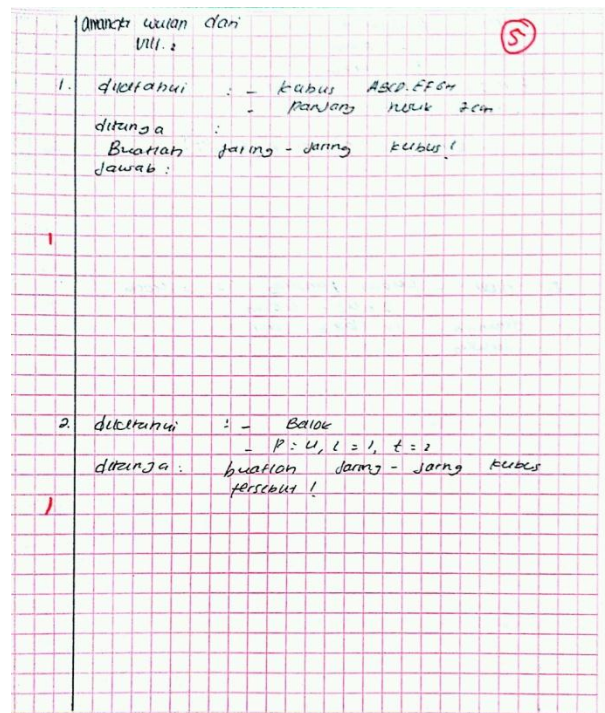 amanda wulan dari
VIII.2
5
1. diketahui : - kubus ABCD.EFGH
- panjang rusuk 2cm
ditanya :
Buatlah jaring-jaring kubus!
Jawab :
1
2. diketahui : - Balok
- P = 4, l = 1, t = 2
ditanya : buatlah jaring-jaring kubus
tersebut!
1